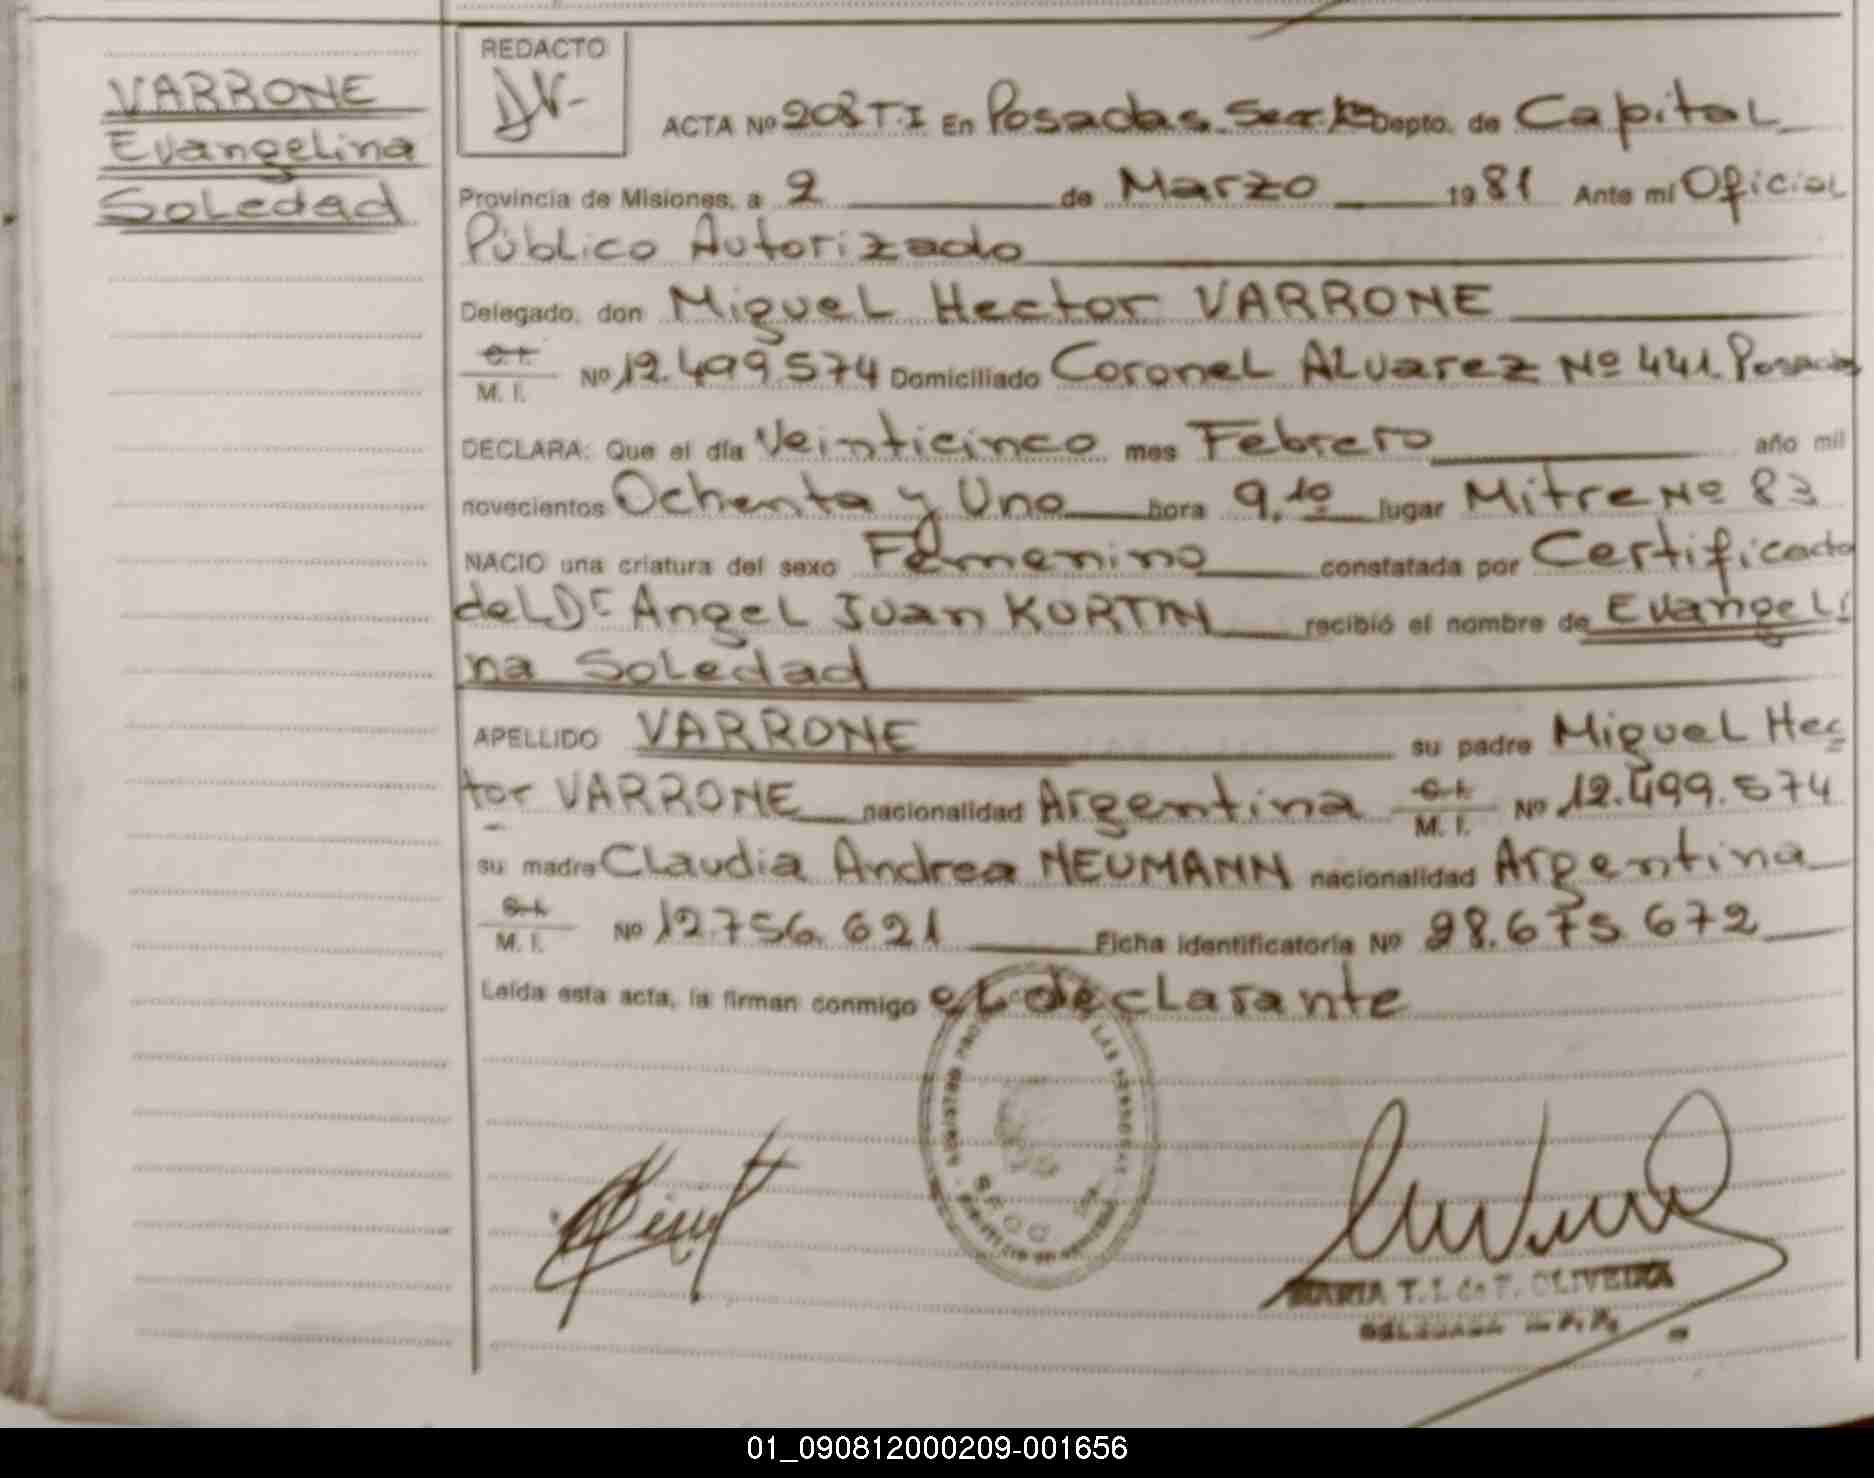 VARRONE
Evangelina
Soledad
REDACTO
ACTA Nº 208 T.I En Posadas Depto. de Capital
Provincia de Misiones, a 2 de Marzo 1981 Ante mí Oficial
Público Autorizado
Delegado, don Miguel Hector VARRONE
M. I. Nº 12.499.574 Domiciliado Coronel Alvarez Nº 441. Posadas
DECLARA: Que el día Veinticinco mes Febrero año mil
novecientos Ochenta y Uno hora 9.10 lugar Mitre Nº 83
NACIO una criatura del sexo Femenino constatada por Certificado
del Dr Angel Juan KURTIN recibió el nombre de Evangeli
na Soledad
APELLIDO VARRONE su padre Miguel Hec
tor VARRONE nacionalidad Argentina M. I. Nº 12.499.574
su madre Claudia Andrea NEUMANN nacionalidad Argentina
M. I. Nº 12.756.621 Ficha identificatoria Nº 28.675.672
Leída esta acta, la firman conmigo el declarante
MARIA T. I. de F. OLIVEIRA
01_090812000209-001656